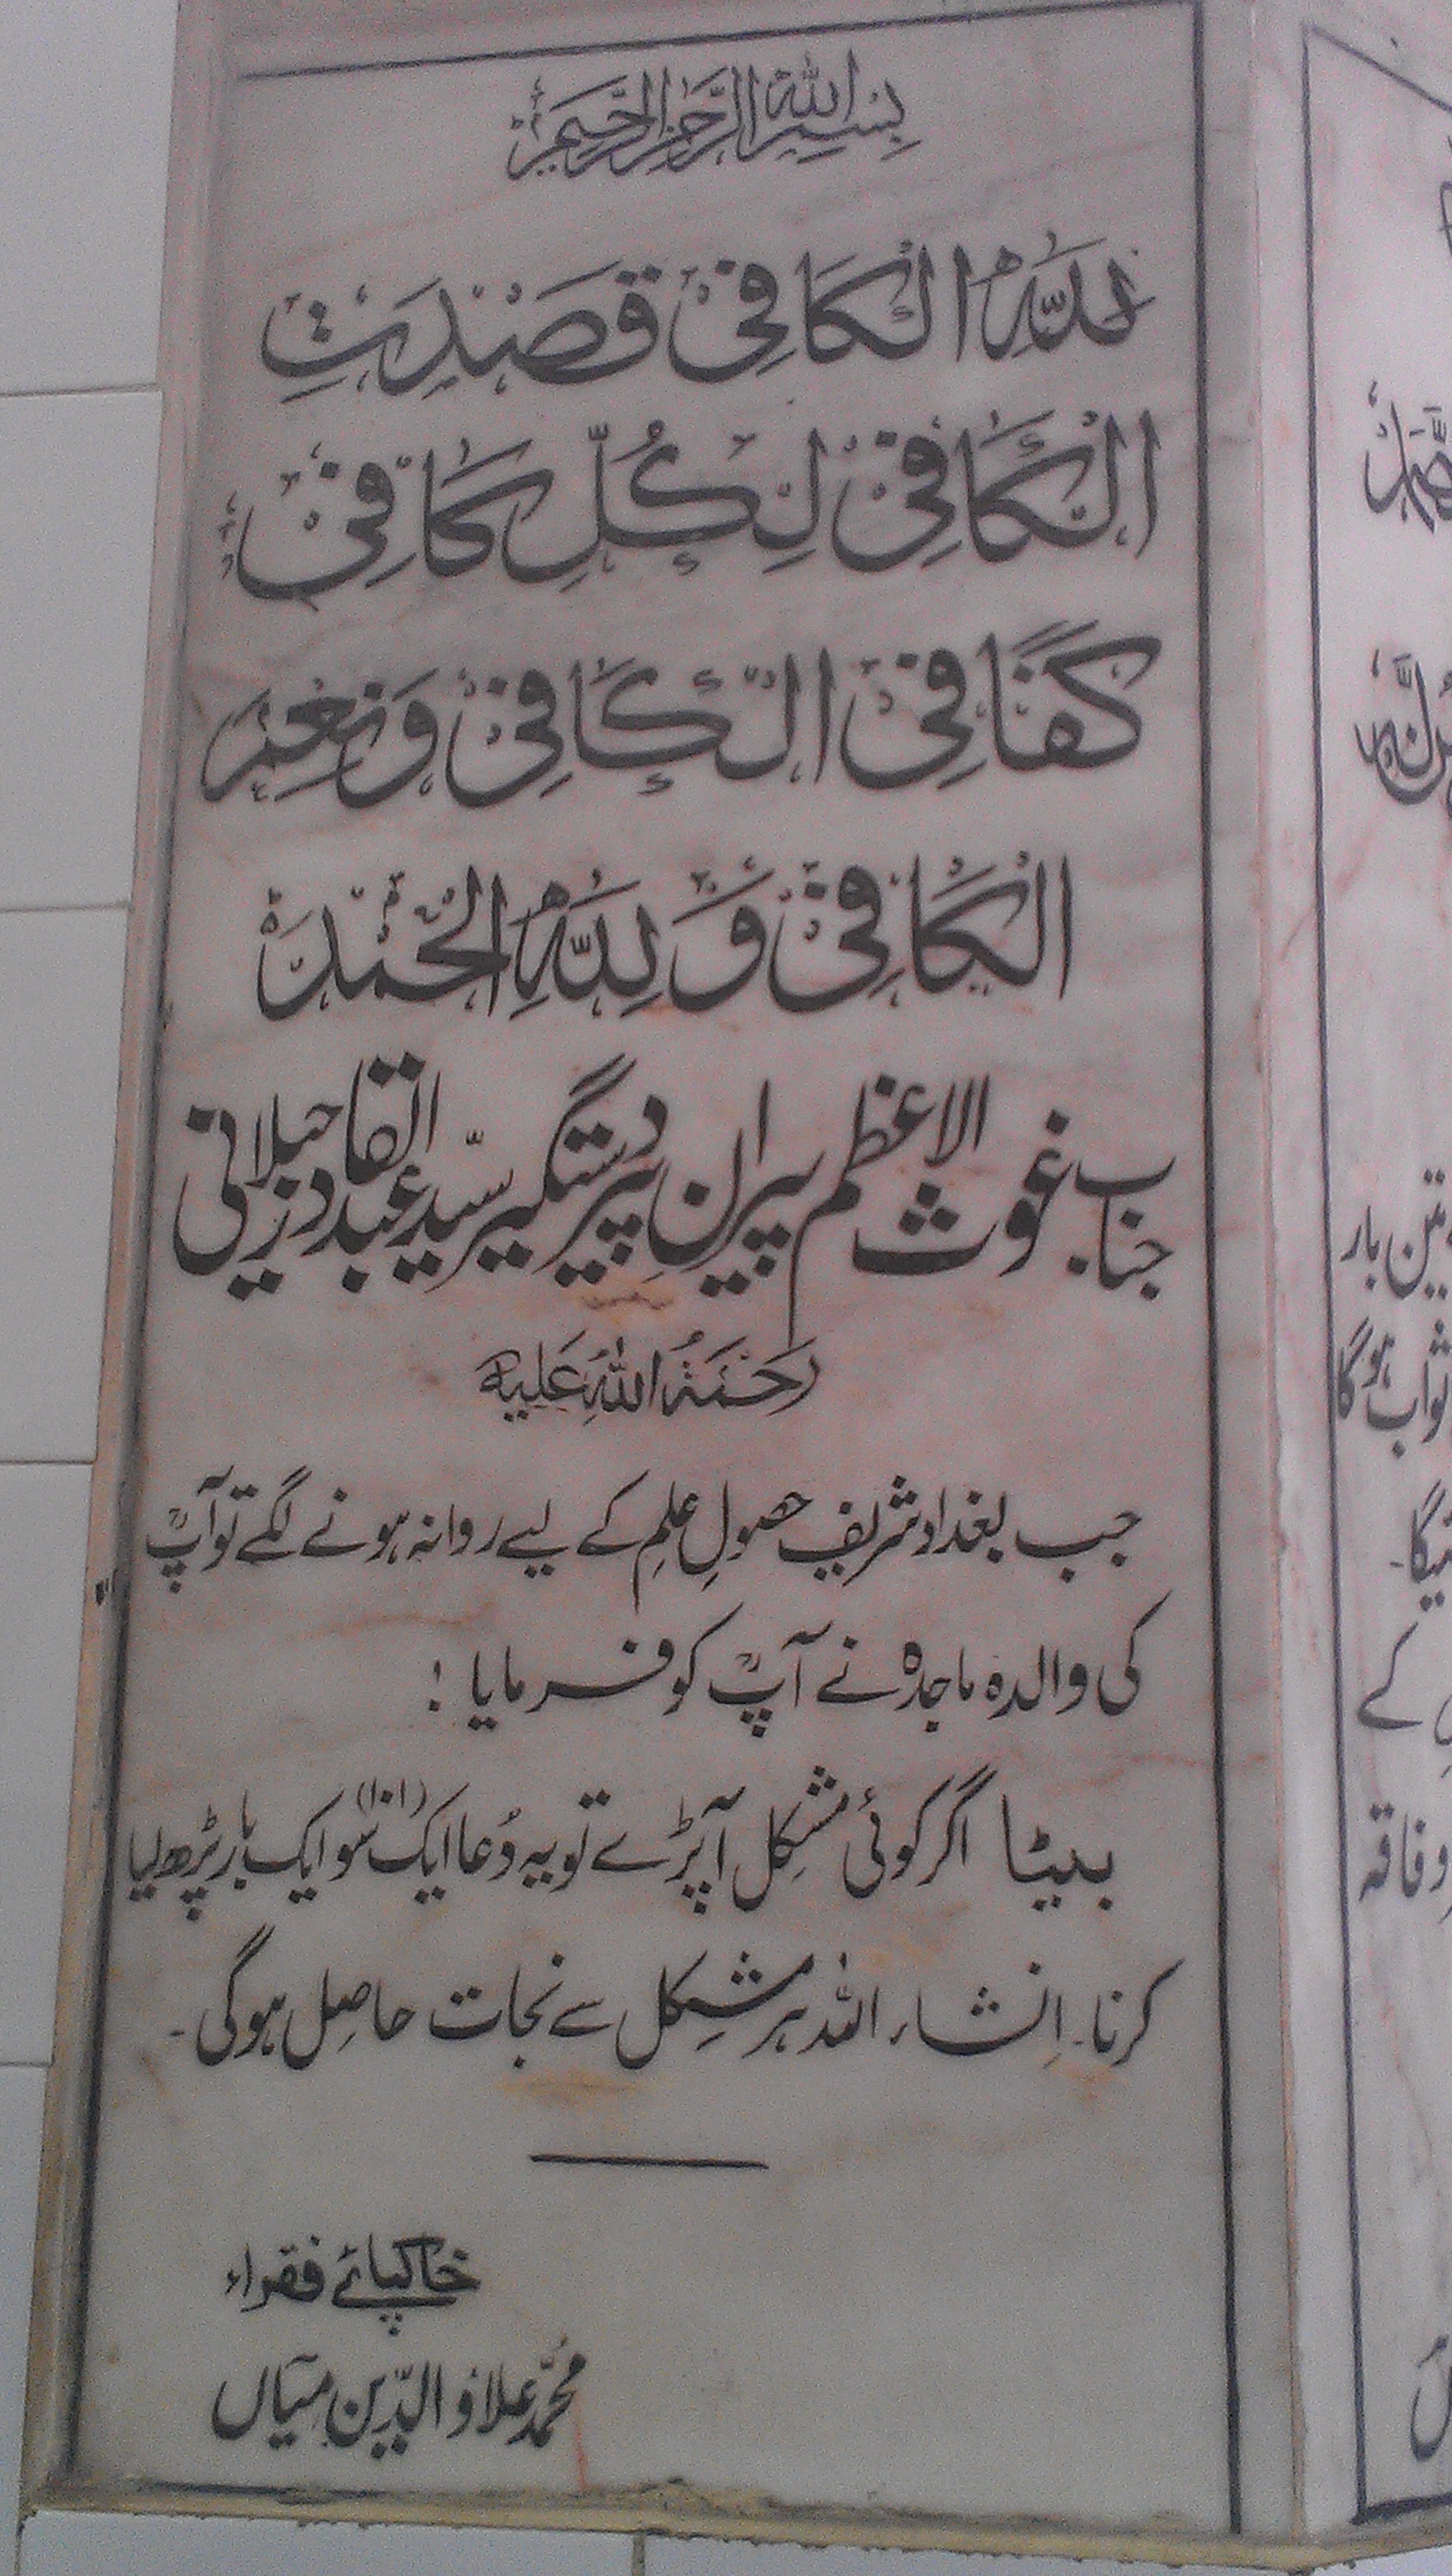 بِسْمِ اللهِ الرَّحْمٰنِ الرَّحِيْمِ
اَللّٰهُ الْكَافِیْ قَصَدْتُ
الْكَافِیْ لِكُلِّ كَافِیْ
كَفَافِیْ الْكَافِیْ وَنِعْمَ
الْكَافِیْ وَلِلّٰهِ الْحَمْدُ
جناب غوث الاعظم پیرانِ پیر دستگیر سیّد عبدالقادر جیلانی
رَحْمَةُ اللهِ عَلَيه
جب بغداد شریف حصولِ علم کے لیے روانہ ہونے لگے تو آپؒ
کی والدہ ماجدہ نے آپؒ کو فرمایا :
بیٹا اگر کوئی مشکل آپڑے تو یہ دُعا ایک سو ایک بار (۱۰۱) پڑھ لیا
کرنا۔ اِنشاء اللہ ہر مشکِل سے نجات حاصِل ہوگی۔
خاکپائے فقراء
محمّد علاؤ الدّین میّاں
تین بار
ثواب ہوگا
کے
و فاقہ